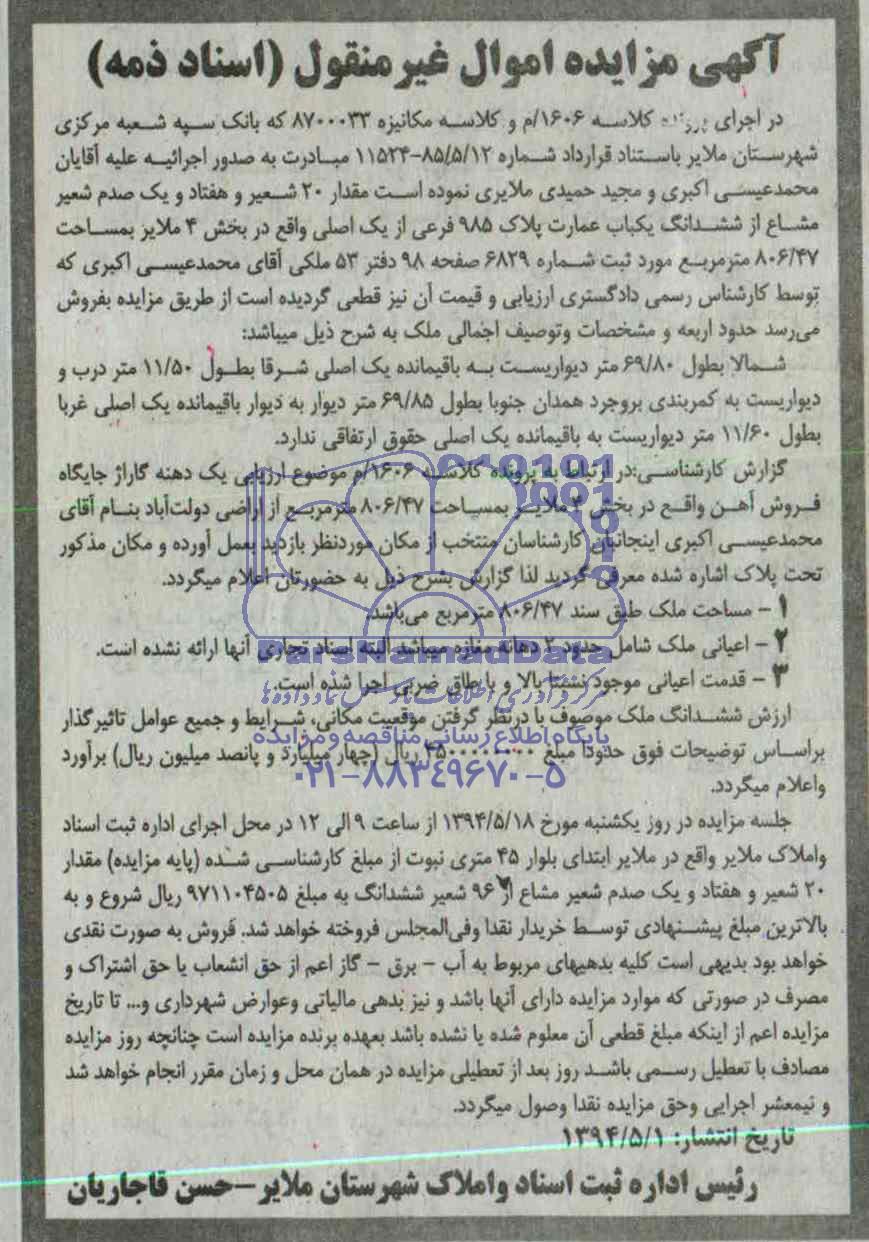 آگهی مزایده اموال غیرمنقول (اسناد ذمه)
در اجرای پرونده کلاسه ۱۶۰۶/م و کلاسه مکانیزه ۸۷۰۰۰۳۳ که بانک سپه شعبه مرکزی
شهرستان ملایر باستناد قرارداد شماره ۱۱۵۲۴-۸۵/۵/۱۲ مبادرت به صدور اجرائیه علیه آقایان
محمدعیسی اکبری و مجید حمیدی ملایری نموده است مقدار ۲۰ شعیر و هفتاد و یک صدم شعیر
مشاع از ششدانگ یکباب عمارت پلاک ۹۸۵ فرعی از یک اصلی واقع در بخش ۴ ملایر بمساحت
۸۰۶/۴۷ مترمربع مورد ثبت شماره ۶۸۲۹ صفحه ۹۸ دفتر ۵۳ ملکی آقای محمدعیسی اکبری که
توسط کارشناس رسمی دادگستری ارزیابی و قیمت آن نیز قطعی گردیده است از طریق مزایده بفروش
می‌رسد حدود اربعه و مشخصات وتوصیف اجمالی ملک به شرح ذیل میباشد:
شمالا بطول ۶۹/۸۰ متر دیواریست به باقیمانده یک اصلی شرقا بطول ۱۱/۵۰ متر درب و
دیواریست به کمربندی بروجرد همدان جنوبا بطول ۶۹/۸۵ متر دیوار به دیوار باقیمانده یک اصلی غربا
بطول ۱۱/۶۰ متر دیواریست به باقیمانده یک اصلی حقوق ارتفاقی ندارد.
گزارش کارشناسی:در ارتباط به پرونده کلاسه ۱۶۰۶/م موضوع ارزیابی یک دهنه گاراژ جایگاه
فروش آهن واقع در بخش ۴ ملایر بمساحت ۸۰۶/۴۷ مترمربع از اراضی دولت‌آباد بنام آقای
محمدعیسی اکبری اینجانبان کارشناسان منتخب از مکان موردنظر بازدید بعمل آورده و مکان مذکور
تحت پلاک اشاره شده معرفی گردید لذا گزارش بشرح ذیل به حضورتان اعلام میگردد.
۱ – مساحت ملک طبق سند ۸۰۶/۴۷ مترمربع می‌باشد.
۲ – اعیانی ملک شامل حدود ۲ دهانه مغازه میباشد البته اسناد تجاری آنها ارائه نشده است.
۳ – قدمت اعیانی موجود نسبتا بالا و با طاق ضربی اجرا شده است.
ارزش ششدانگ ملک موصوف با درنظر گرفتن موقعیت مکانی، شرایط و جمیع عوامل تاثیرگذار
براساس توضیحات فوق حدودا مبلغ ریال (چهار میلیارد و پانصد میلیون ریال) برآورد
واعلام میگردد.
جلسه مزایده در روز یکشنبه مورخ ۱۳۹۴/۵/۱۸ از ساعت ۹ الی ۱۲ در محل اجرای اداره ثبت اسناد
واملاک ملایر واقع در ملایر ابتدای بلوار ۴۵ متری نبوت از مبلغ کارشناسی شده (پایه مزایده) مقدار
۲۰ شعیر و هفتاد و یک صدم شعیر مشاع از ۹۶ شعیر ششدانگ به مبلغ ۹۷۱۱۰۴۵۰۵ ریال شروع و به
بالاترین مبلغ پیشنهادی توسط خریدار نقدا وفی‌المجلس فروخته خواهد شد. فروش به صورت نقدی
خواهد بود بدیهی است کلیه بدهیهای مربوط به آب – برق – گاز اعم از حق انشعاب یا حق اشتراک و
مصرف در صورتی که موارد مزایده دارای آنها باشد و نیز بدهی مالیاتی وعوارض شهرداری و... تا تاریخ
مزایده اعم از اینکه مبلغ قطعی آن معلوم شده یا نشده باشد بعهده برنده مزایده است چنانچه روز مزایده
مصادف با تعطیل رسمی باشد روز بعد از تعطیلی مزایده در همان محل و زمان مقرر انجام خواهد شد
و نیمعشر اجرایی وحق مزایده نقدا وصول میگردد.
تاریخ انتشار: ۱۳۹۴/۵/۱
رئیس اداره ثبت اسناد واملاک شهرستان ملایر–حسن قاجاریان
ParsNamadData
پایگاه اطلاع رسانی مناقصه و مزایده
۰۲۱-۸۸۳۴۹۶۷۰-۵